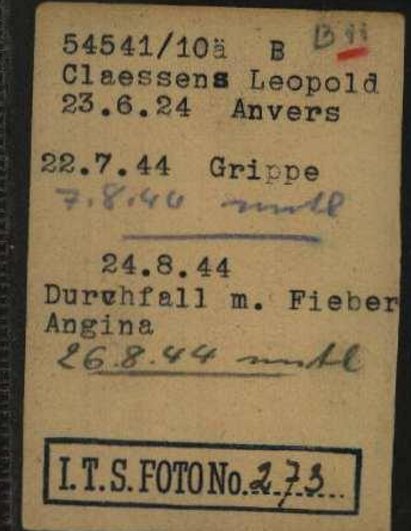 54541/10ä B B
Claessens Leopold
23.6.24 Anvers
22.7.44 Grippe
7.8.44
24.8.44
Durchfall m. Fieber
Angina
26.8.44
I.T.S. FOTO No. 273